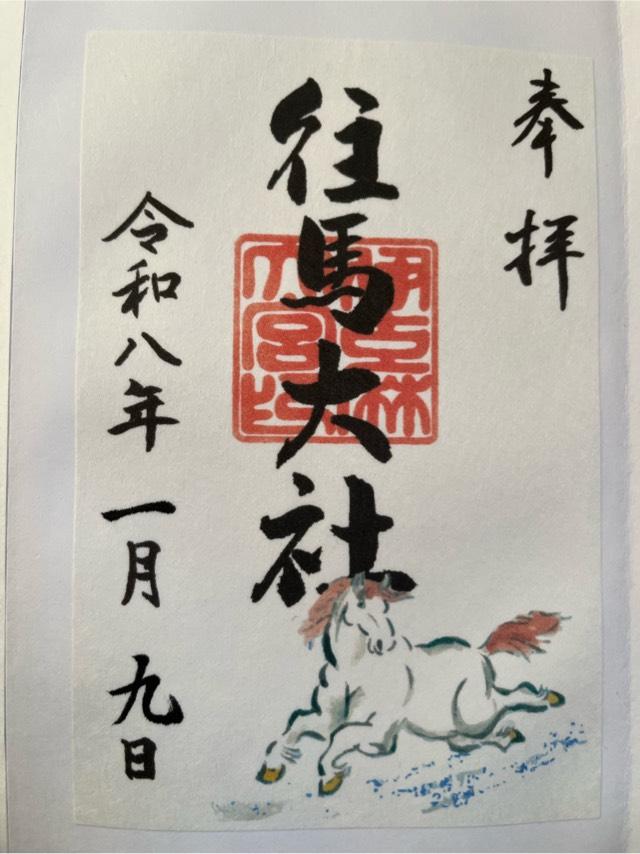 奉拝
往馬大社
令和八年一月九日